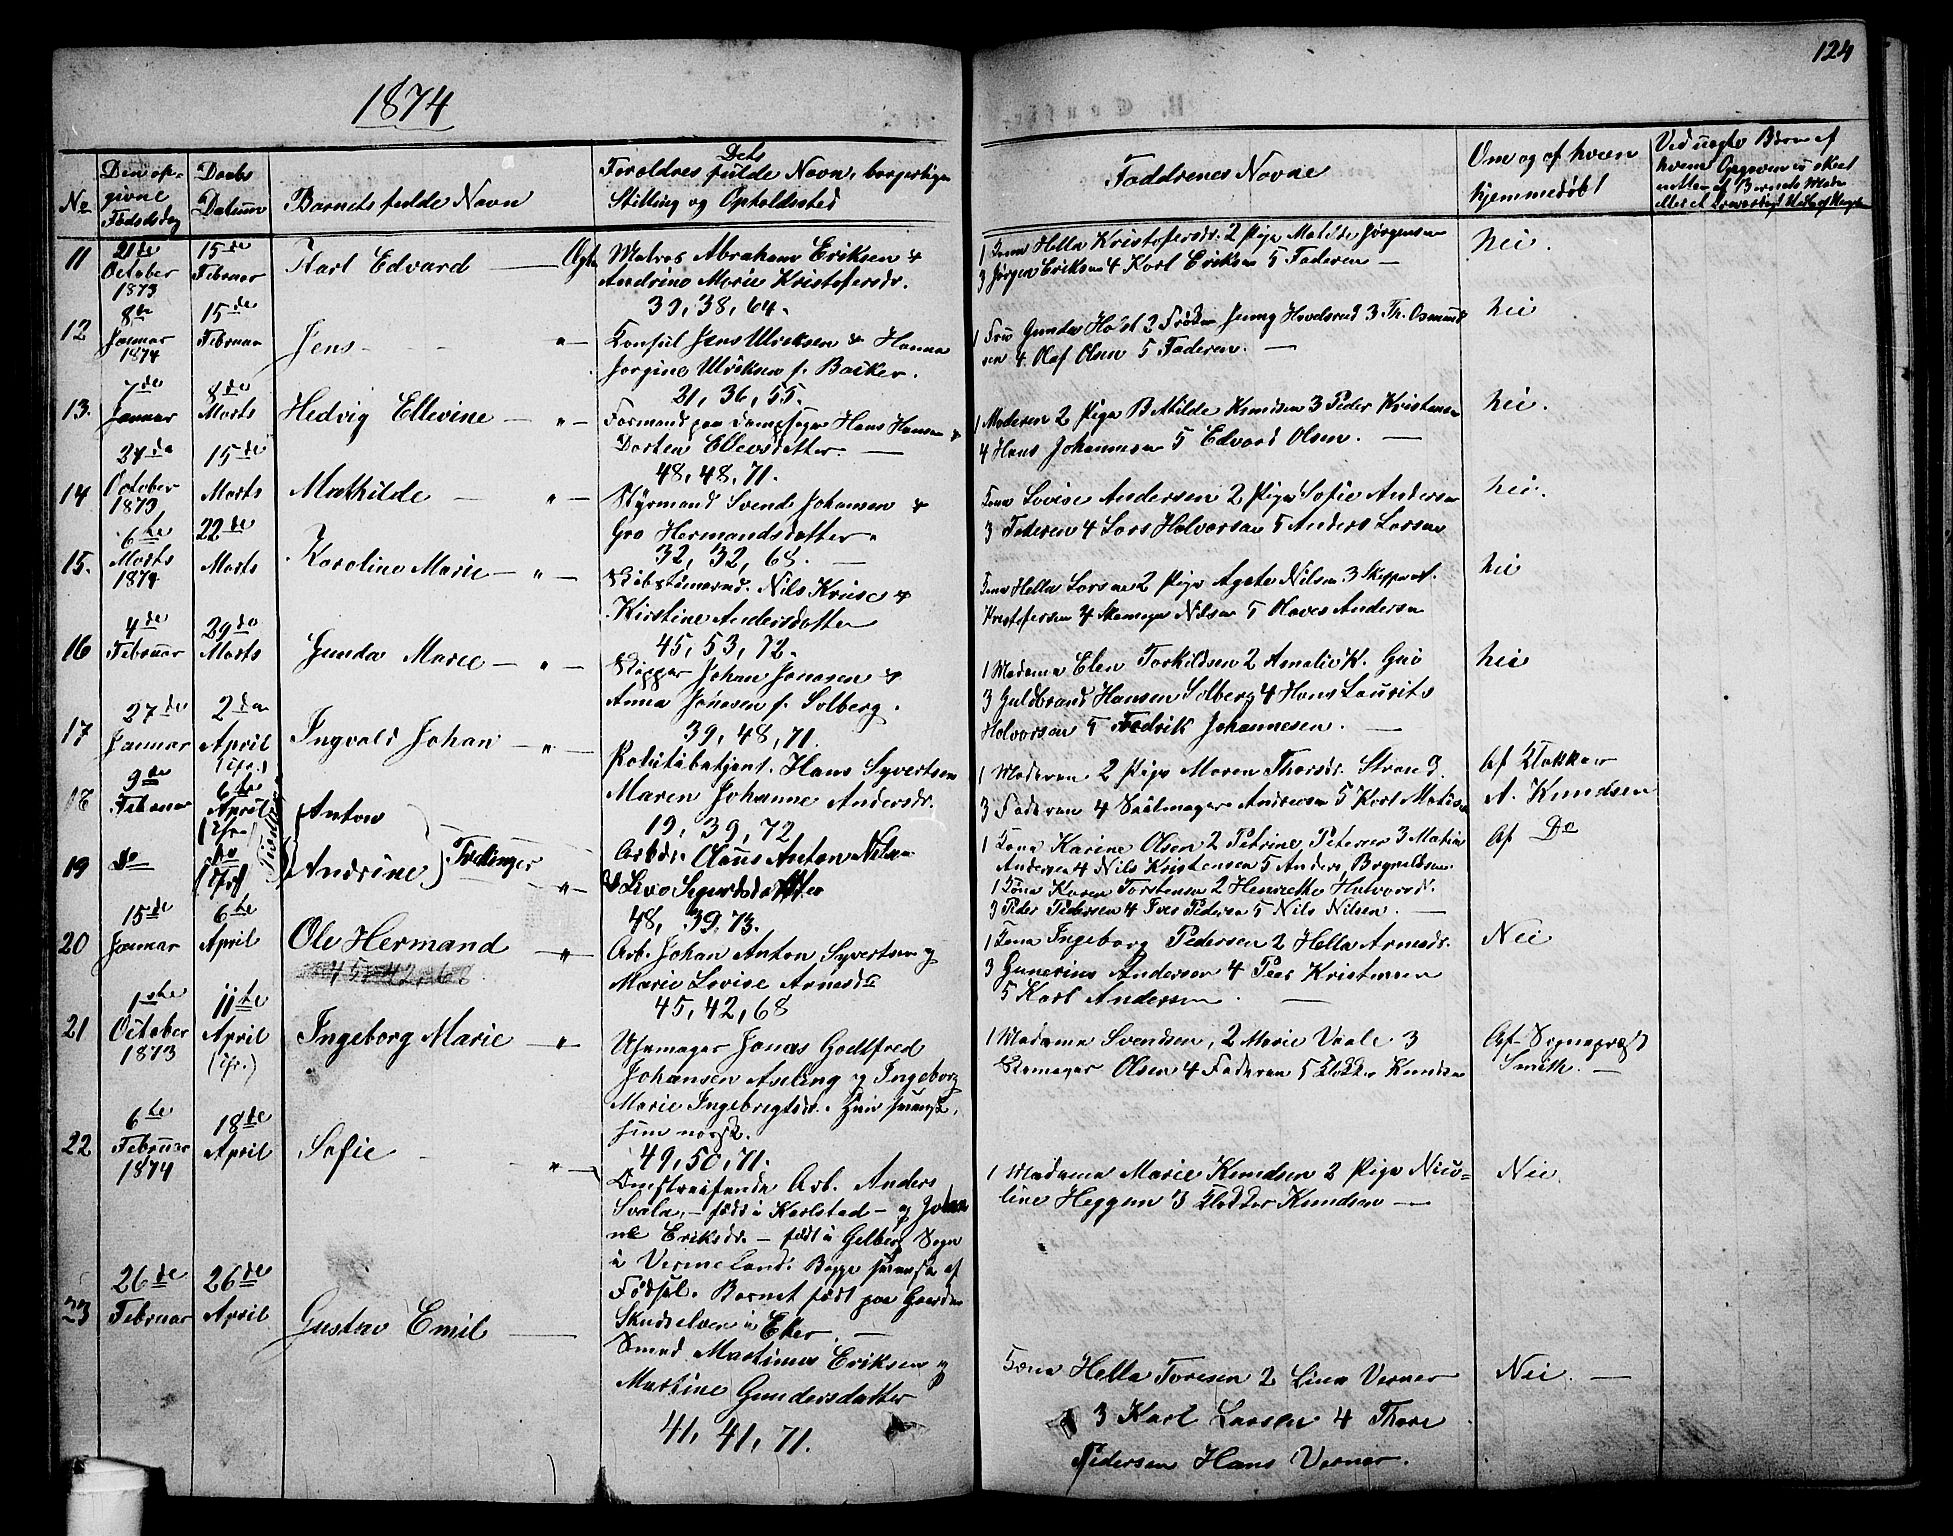 1874
124
No
Den op-
givne
Fødselsdag
Daabs
Datum
Barnets fulde Navn
Dets
Forældres fulde Navn, borgerlige
Stilling og Opholdssted
Faddrenes Navne
Om og af hvem
hjemmedøbt
Ved uægte Børn af
hvem Opgaven er skeet
enten af Barnets Moder
11 21de October 1873 15de Februar Karl Edvard — Ægte
Matros Abrahams Eriksen &
Andrine Marie Kristofersdr.
39, 38, 64.
1 Kona Hella Kristofersdr. 2 Pige Matilde Jørgensen
3 Jørgen Eriksen 4 Karl Eriksen 5 Faderen —
Nei.
12 8de Januar 1874 15de Februar Jens — " —
Konsul Jens Ulriksen & Hanna
Jorgine Ulriksen f. Backer.
21, 36, 55.
1 Fru Gunda Holst 2 Frøken Jenny Hovelsrud 3 Th. Osmund
sen 4. Olaf Olsen 5 Faderen. —
Nei
13. 7de Januar 8de Marts Hedvig Ellevine — " —
Formand paa Dampsagen Hans Hansen &
Dorten Ellevsdatter —
48, 48, 71.
1 Moderen 2 Pige B Matilde Knudsen 3 Peder Kristensen
4 Hans Johannesen 5 Edvard Olsen. —
Nei.
14 27de October 1873 15de Marts Mathilde — " —
Styrmand Svend Johansen &
Gro Hermandsdatter.
32, 32, 68. —
Kona Lovise Andersen 2 Pige Sofie Andersen
3 Faderen 4 Lars Halvorsen 5 Anders Larsen
Nei.
15. 6te Marts 1874 22de Marts Karoline Marie — " —
Skibstømmerd. Nils Kruse &
Kirstine Andersdatter
45, 53, 72.
Kona Hella Larsen 2 Pige Agate Nilsen 3 Skipper
Kristofersen 4 Nilsen 5 Olaves Andersen
Nei
16 4de Februar 29de Marts Gunda Marie — " —
Skipper Johan Jonasen &
Anna Jonasen f. Solberg.
39, 48, 71.
1 Madama Elen Torkildsen 2 Amalie K. Grü
3 Guldbrand Hansen Solberg 4 Hans Laurits
Halvorsen 5 Fredrik Johannesen. —
Nei
17 27de Januar 2den April (Cfr.) Ingvald Johan — " —
Politibetjent. Hans Syvertsen
Maren Johanne Andersdr.
19, 39, 72
1 Moderen 2 Pige Maren Thorsdr. Strand.
3 Faderen 4 Seilmager Andersen 5 Karl Matisen
Af Klokker
A. Knudsen
18 9de Februar 6te April (Cfr.) Anton
19 Do Do (Cfr.) Andrine } Tvillinger — " —
Arbdr. Olaus Anton Nilsen
& Lise Sigurdsdatter
48, 39, 73.
1 Kona Karine Olsen 2 Petrine Petersen 3 Matias
Andersen 4 Nils Kristensen 5 Anders Brynildsen
1 Kona Karen Torstensen 2 Henriette Halvorsd.
3 Peder Pedersen 4 Ives Pedersen 5 Nils Nilsen. —
Af Do
20 15de Januar 6te April Ole Hermand — " —
45, 42, 68
Arb. Johan Anton Syvertsen og
Marie Lovise Arnesdr
45, 42, 68
1 Kona Ingeborg Pedersen 2 Hella Arnesdr.
3 Gunerius Andersen 4 Peer Kristensen
5 Karl Andersen. —
Nei
21 1ste October 1873 11te April (Cfr.) Ingeborg Marie — " —
Uhrmager Jonas Godtfred
Johansen Aseling og Ingeborg
Marie Ingebregtsdr. Han svensk,
hun norsk.
49, 50, 71.
1 Madama Svendsen, 2 Marie Vaale 3
Skomager Olsen 4 Faderen 5 Klokker Knudsen
Af Sogneprest
Smith. —
22 6te Februar 1874 18de April Sofie — " —
Omstreifende Arb. Anders
Svala, — født i Karlstad — og Johan
ne Eriksdr. — født i Gelberg Sogn
i Vermeland. Begge svenske af
Fødsel. Barnet født paa Gaarden
Skudselven i Eker. —
1 Madama Marie Knudsen 2 Pige Nico-
line Heggem 3 Klokker Knudsen —
Nei.
23 26de Februar 26de April Gustav Emil —
Smed Martinus Eriksen og
Martine Gundersdatter
41, 41, 71.
Kona Hella Toresen 2 Lina Verner
3 Karl Larsen 4 Thore
Pedersen Hans Verner.
Nei. —